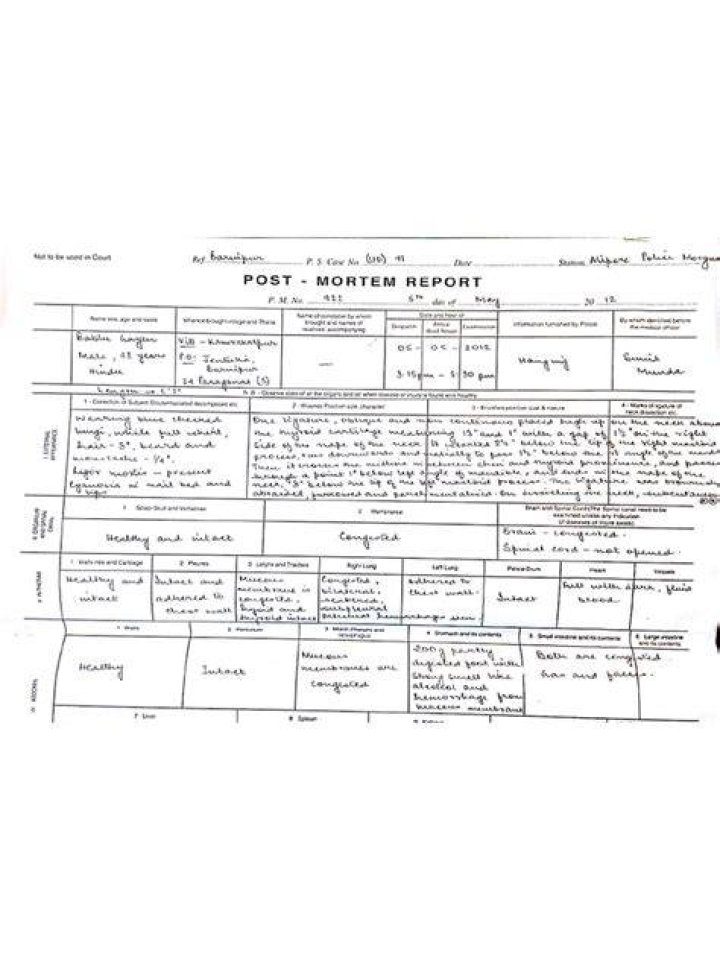 Not to be used in Court Ref Baruipur P. S. Case No. (UD) 91 Date Station Alipore Police Morgue
POST - MORTEM REPORT
P. M. No. 922 5th day of May 20 12
Name sex, age and caste
Whence brought village and Thana
Name of constable by whom brought and names of relatives accompanying
Date and hour of
Despatch
Arrival dead house
Examination
Information furnished by Police
By whom identified before the medical officer
Male, 48 years
Hindu
Vill -
P.O:
Baruipur
24 Paraganas (S)
—
05 - 05 - 2012
3:15pm - 5:30 pm
Hanging
Sumit
Munda
N. B - Observe state of all the organs and
1 - Condition of Subject
2 - Wounds Position size character
3 - Bruises position size & nature
4 - Marks of ligature of neck dissection etc.
EXTERNAL APPEARANCE
Wearing blue checked
lungi, white full
hair - 3", beard and
moustache - ¼".
Rigor mortis - present
Cyanosis in nail bed and
lips
One ligature, oblique and non continuous placed high up on the neck above
the thyroid cartilage measuring 13" and 1" with a gap of 1½" on the right
side of the nape of the neck. It 2½" below the tip of the right mastoid
process, downwards and to pass 1½" below the angle of the
Then it crosses the midline in between chin and thyroid prominence, and passes
through a point 1" below left angle of mandible, and ends in the nape of the
neck, "3" below the tip of the left mastoid process. The ligature was brownish,
abraided, furrowed and parchmentalised. On dissecting the neck, subcutaneous
1 Scalp Skull and Vertebrae
2 Membrane
Brain and Spinal Cord (The Spinal canal need to be examined unless any indication of disease or injury exists)
Healthy and intact
Congested
Brain - congested.
Spinal cord - not opened.
1 Walls ribs and Cartilage
2 Pleurae
3 Larynx and Trachea
Right Lung
Left Lung
Pericardium
Heart
Vessels
Healthy and
intact
Intact and
adhered to
chest wall
Mucous
membrane is
congested,
hyoid and
thyroid intact
Congested,
bilateral,
scattered,
subpleural
petechial hemorrhage seen.
adhered to
chest wall.
Intact
Full with dark, fluid
blood.
1 Walls
2 Peritoneum
3 Mouth Pharynx and oesophagus
4 Stomach and its contents
5 Small intestine and its contents
6 Large intestine and its contents
Healthy
Intact
Mucous
membranes are
congested
200g partly
digested food with
strong smell like
alcohol and
hemorrhage from
mucous membrane
Both are congested
Gas and faeces.
7 Liver
8 Spleen